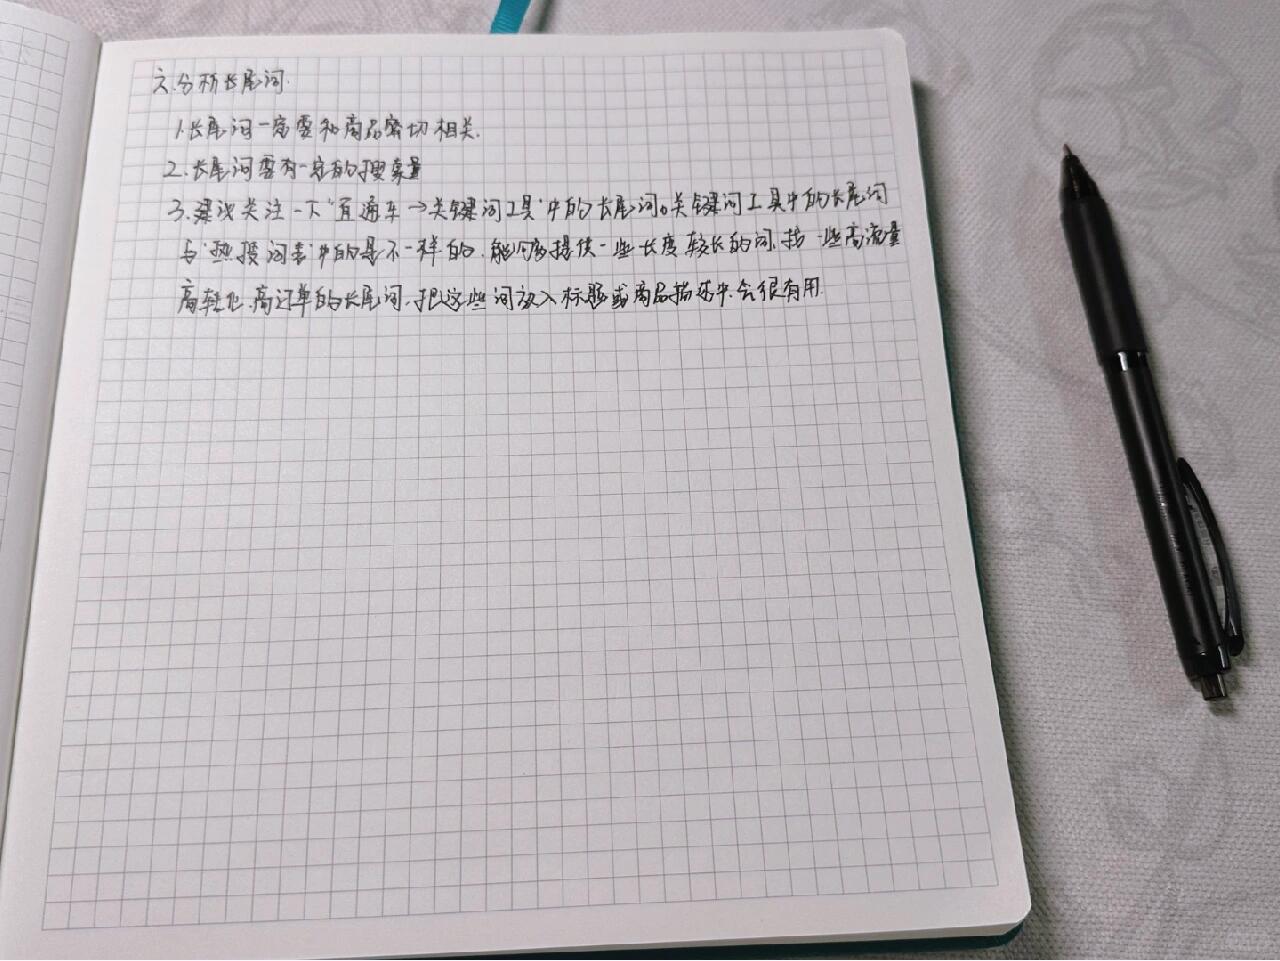 六.分析长尾词.
1.长尾词一定要和商品密切相关.
2.长尾词要有一定的搜索量
3.建议关注一下"直通车→关键词工具"中的长尾词。关键词工具中的长尾词
与"热搜词表"中的是不一样的.能够多提供一些长度较长的词.找一些高流量
高转化.高订单的长尾词.把这些词放入标题或商品描述中.会很有用.